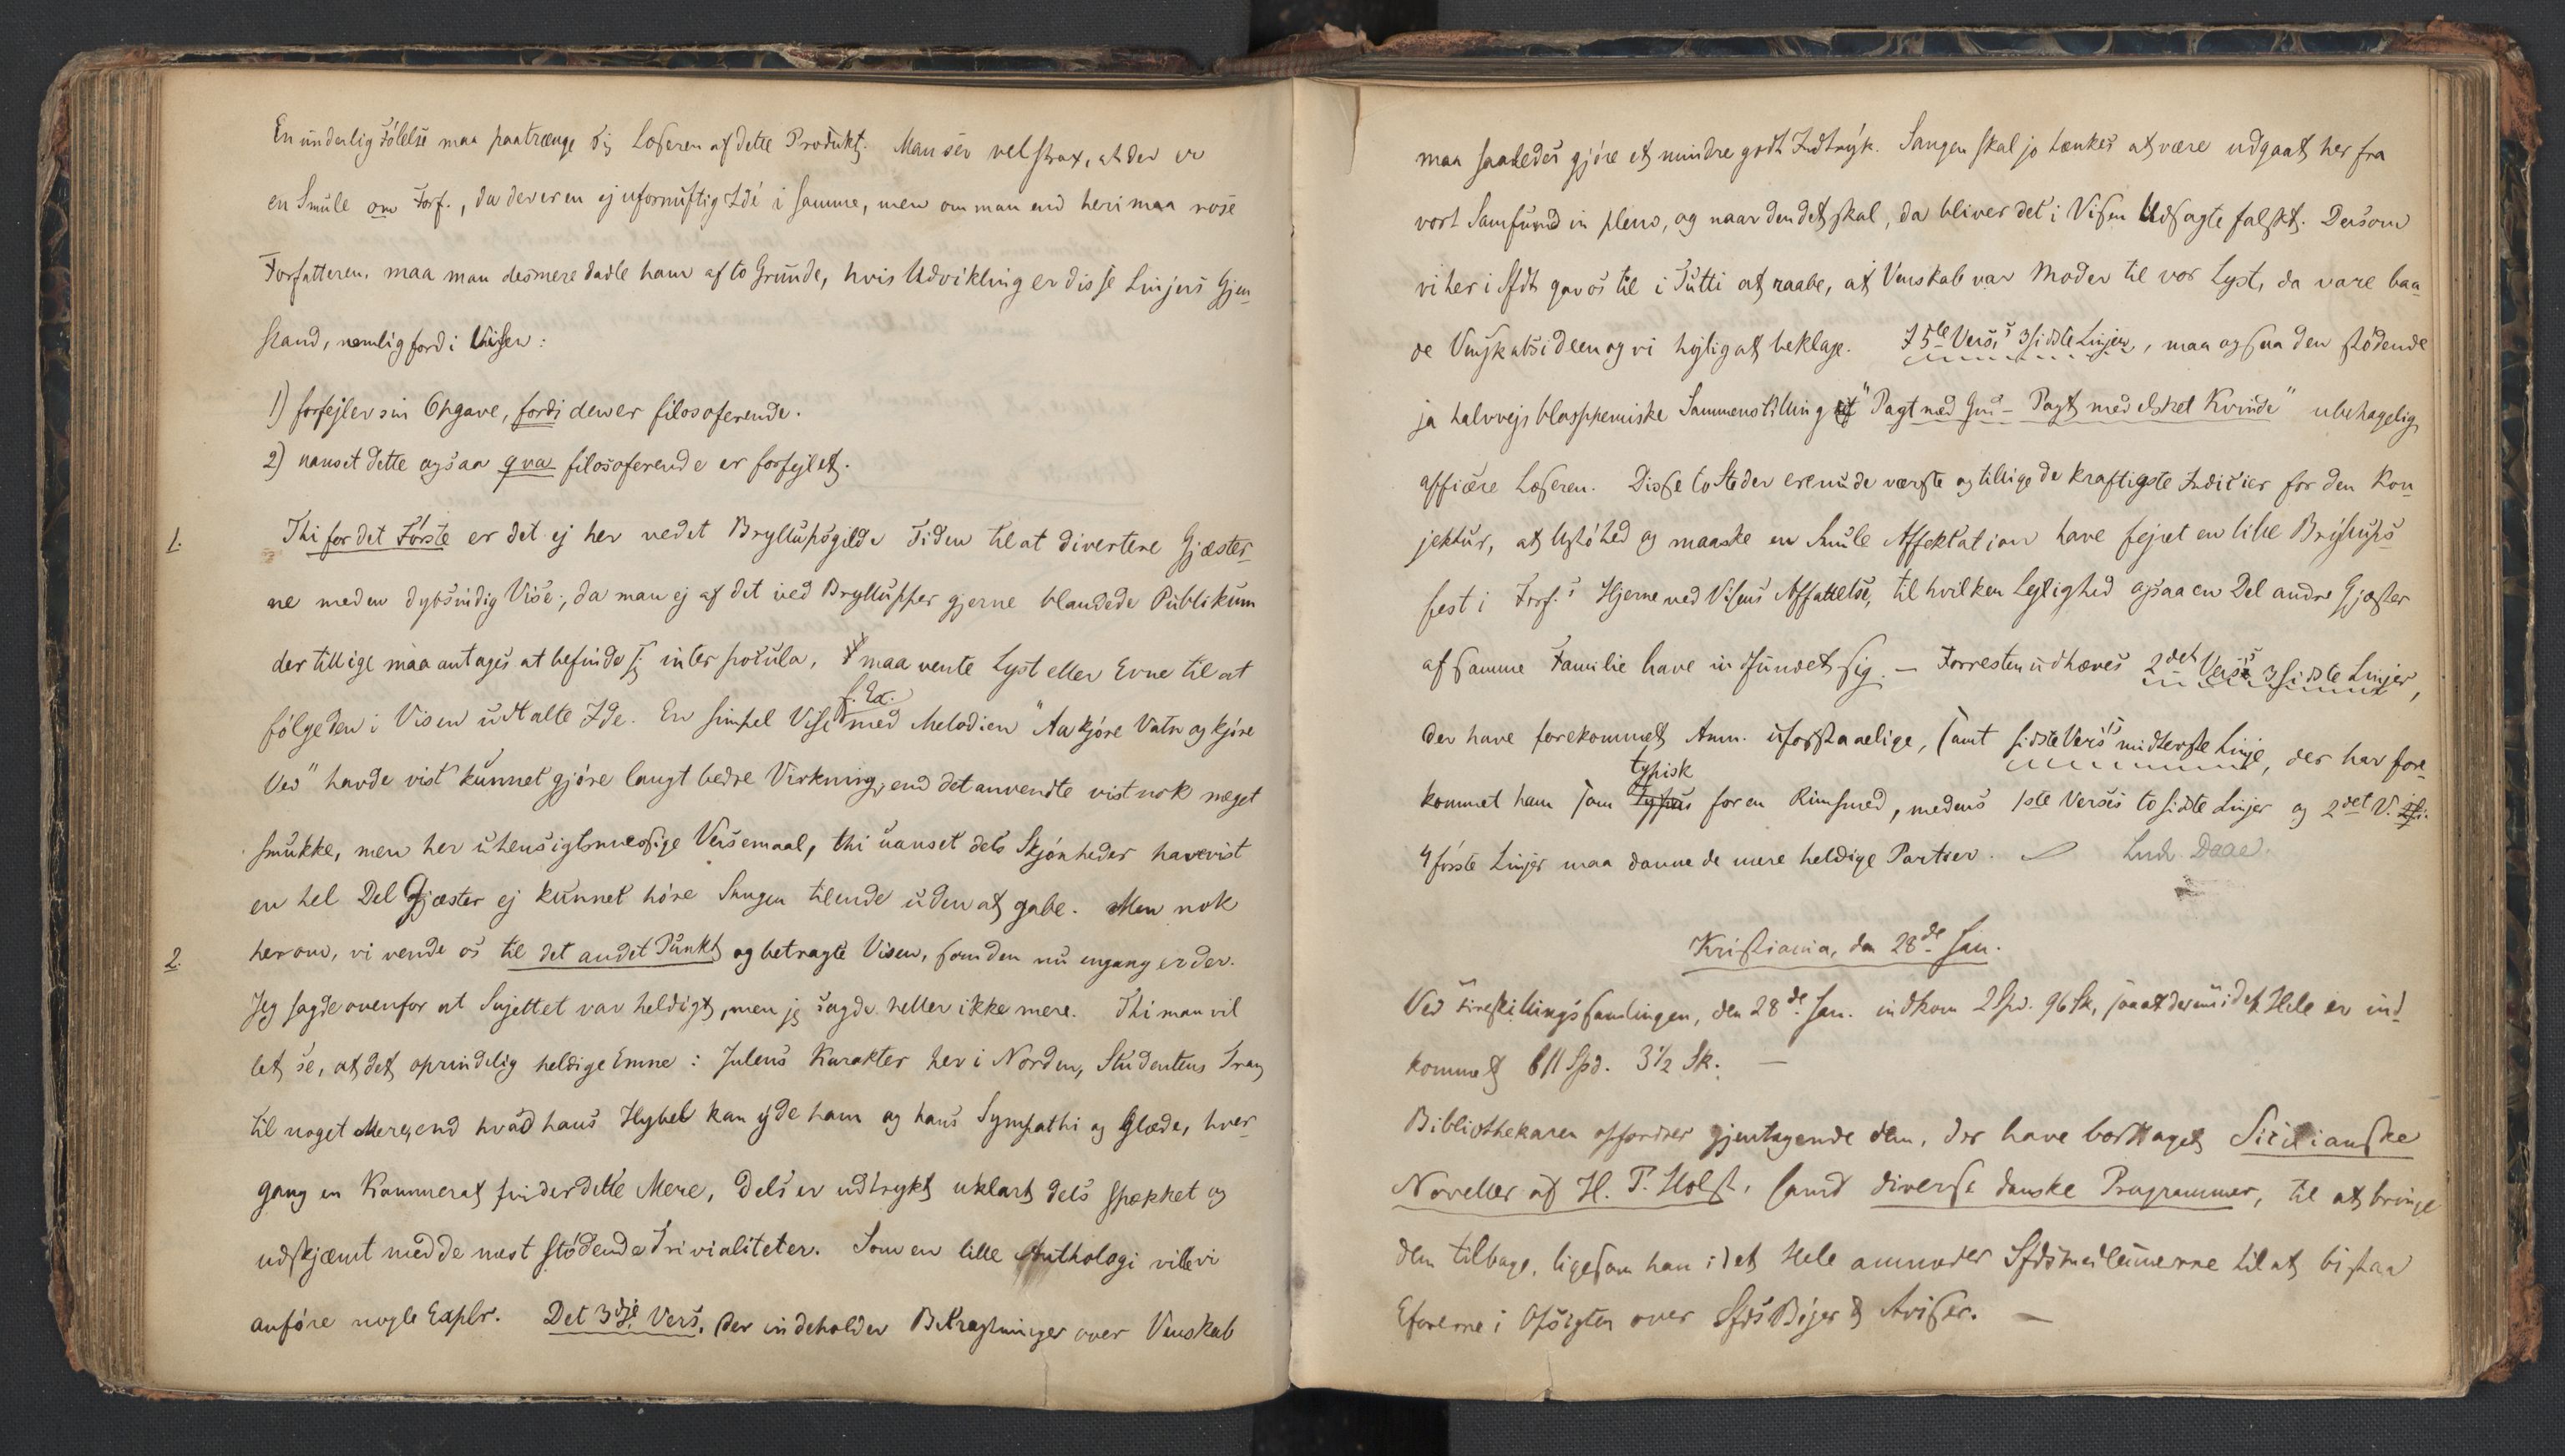 En underlig Følelse maa paatrænge sig Læseren af dette Produkt. Man sér vel strax, at der er
en Smule om Forf., da der er en ej ufornuftig Idé i samme, men om man end heri maa rose
Forfatteren, maa man desmere dadle ham af to Grunde, hvis Udvikling er disse Linjers Gjen-
stand, nemlig fordi Visen:
1) forfejler sin Opgave, fordi den er filosoferende.
2) uanset dette ogsaa qva filosoferende er forfejlet.
1. Thi for det Første er det ej her ved et Bryllupsgilde Tiden til at divertere Gjæster-
ne med en dybsindig Vise, da man ej af det ved Bryllupper gjerne blandede Publikum
der tillige maa antages at befinde sig inter pocula, maa vente Lyst eller Evne til at
følge den i Visen udtalte Ide. En simpel Vise f. Ex. med Melodien "Aa kjøre Vatn og kjøre
Ved" havde vist kunnet gjøre langt bedre Virkning, end det anvendte vistnok meget
smukke, men her uhensigtsmæssige Versemaal, thi uanset dets Skjønheder have vist
en hel Del Gjæster ej kunnet høre Sangen tilende uden at gabe. Men nok
2. herom, vi vende os til det andet Punkt og betragte Visen, som den nu engang er der.
Jeg sagde ovenfor at Sujettet var heldigt, men jeg sagde heller ikke mere. Thi man vil
let se, at det oprindelig heldige Emne: Julens Karakter her i Norden, Studentens Trang
til noget Mere, end hvad hans Hybel kan yde ham og hans Sympathi og Glæde, hver-
gang en Kammerat finder dette Mere, dels er udtrykt uklart dels spækket og
udskjæmt med de mest stødende Trivialiteter. Som en lille Anthologi ville vi
anføre nogle Explr. Det 3dje Vers, der indeholder Betragtninger over Venskab
maa saaledes gjøre et mindre godt Indtryk. Sangen skal jo tænkes at være udgaat her fra
vort Samfund in pleno, og naar den det skal, da bliver det i Visen Udsagte falskt. Dersom
vi her i Sfdt gav os til i Tutti at raabe, at Venskab var Moder til vor Lyst, da vare baa-
de Venskabsideen og vi højlig at beklage. I 5te Vers's 3 sidste Linjer, maa ogsaa den stødende
ja halvvejs blasphemiske Sammenstilling af "Pagt med Gud – Pagt med elsket Kvinde" ubehagelig
afficere Læseren. Disse to Steder ere nu de værste og tillige de kraftigste Indicier for den Kon-
jektur, at Usløhed og maaske en Smule Affektation have fejret en lille Bryllups-
fest i Forf.s Hjerne ved Visens Affattelse, til hvilken Lejlighed ogsaa en Del andre Gjæster
af samme Familie have indfundet sig. – Forresten udhæves 2det Vers's 3 sidste Linjer,
der have forekommet Anm. uforstaaelige, samt sidste Vers's midterste Linje, der har fore-
kommet ham som typisk for en Rimsmed, medens 1ste Verses to sidste Linjer og 2det V.
4 første Linjer maa danne de mere heldige Partier. Ludv. Daae.
Kristiania, den 28de Jan.
Ved Fireskillingssamlingen, den 28de Jan. indkom 2 Spd. 96 Sk, saa at der nu i det Hele er ind-
kommet 611 Spd. 3½ Sk. –
Bibliothekaren opfordrer gjentagende dem, der have borttaget Sicilianske
Noveller af H. P. Holst, samt diverse danske Programmer, til at bringe
dem tilbage, ligesom han i det Hele anmoder Sfdsmedlemmerne til at bistaa
Eforerne i Opsigten over Sfds Bøger & Aviser. –